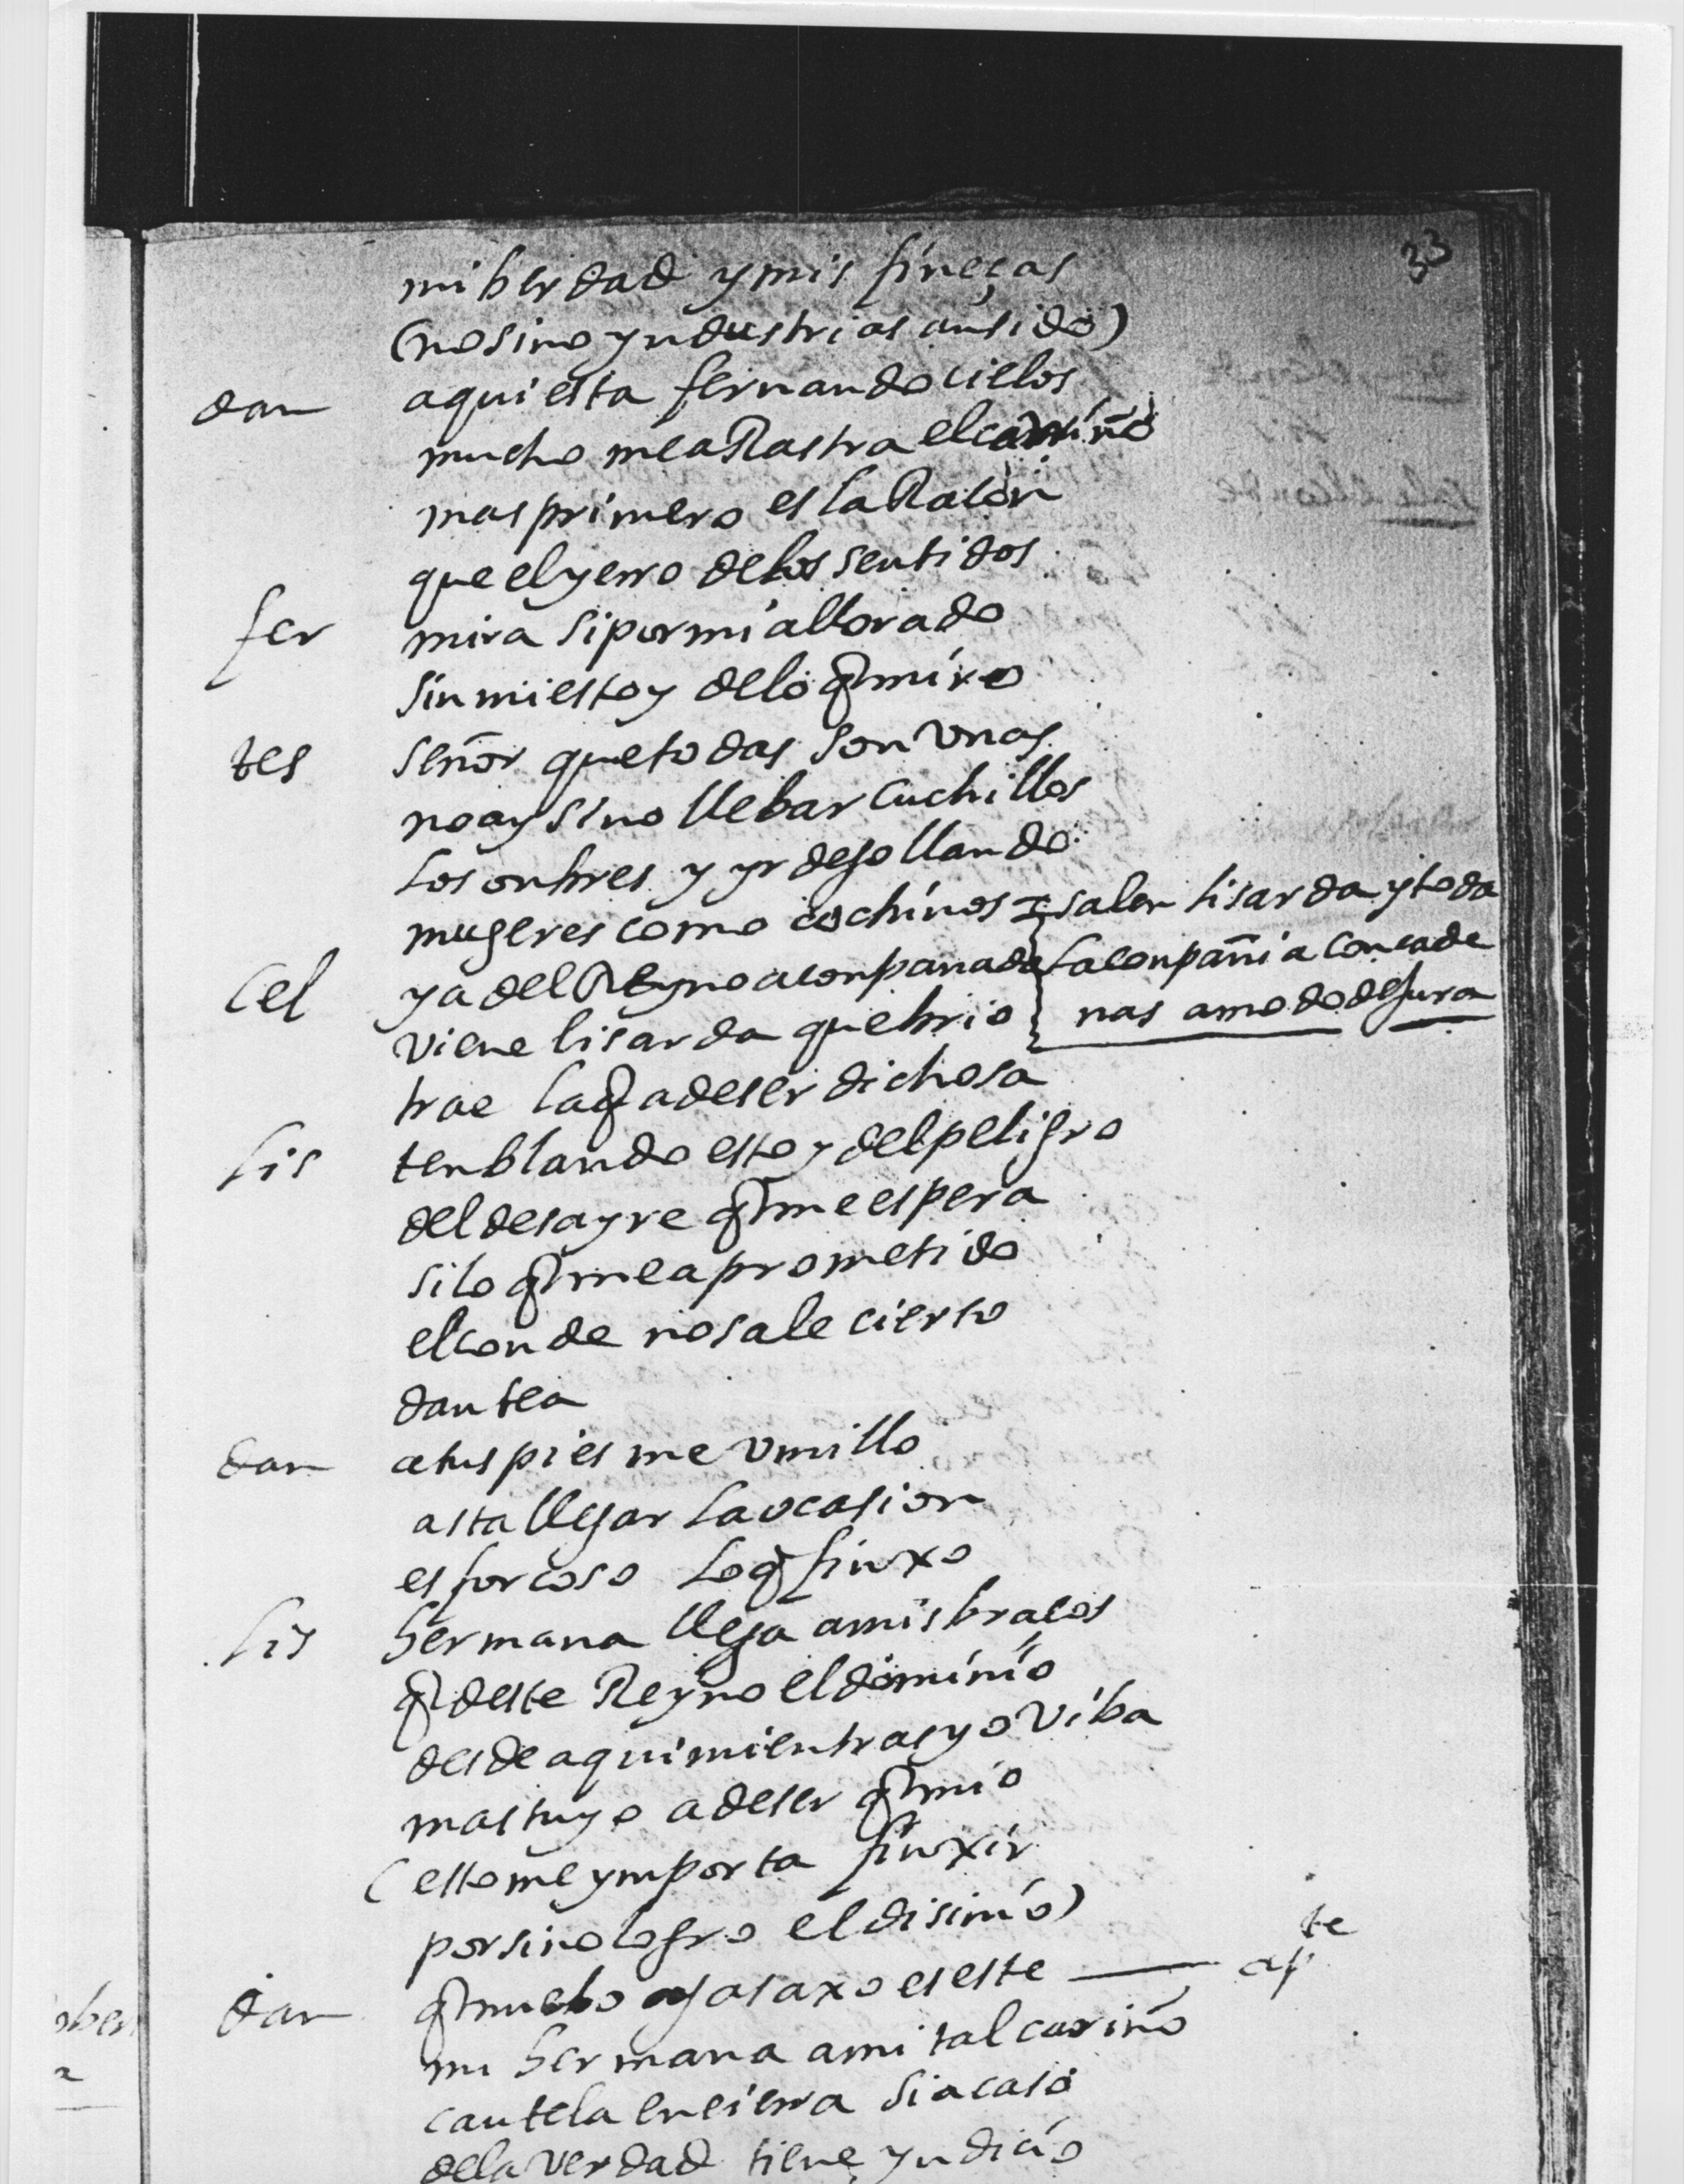 33
mi berdad y mis fineças
(no sino yndustrias an sido)
dan aqui esta fernando cielos
mucho me aRastra el cariño
mas primero es la Racon
que el yerro de los sentidos
fer mira si por mi a llorado
sin mi estoy de lo q miro
tes señor que todas son vnas
no ay sino llebar cuchillos
los onbres y yr degollando
mugeres como cochinos
salen lisarda y toda
la conpañia con cade
nas a modo de jura
Cel ya del Reyno aconpanada
viene lisarda que brio
trae la q a de ser dichosa
lis tenblando estoy del peligro
del desayre q me espera
si lo q me a prometido
el conde no sale cierto
dantea
dan a tus pies me vmillo
asta llegar la ocasion
es forcoso lo q finxo
lis hermana llega a mis bracos
q deste Reyno el dominio
desde aqui mientras yo viba
mas tuyo a de ser q mio
(esto me ymporta finxir
por si no logro el disinio)
dan q nuebo agasaxo es este — apte
mi hermana a mi tal cariño
cautela encierra si acaso
de la verdad tiene yndicio